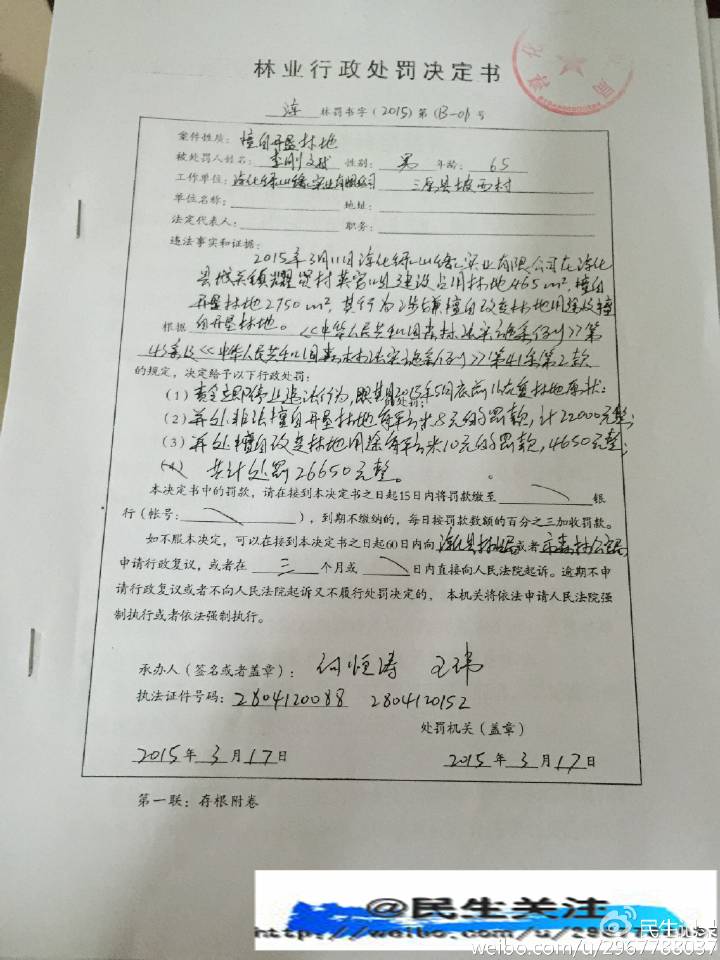 林业行政处罚决定书
淳 林罚书字（2015）第（B-01）号
案件性质：擅自开垦林地
被处罚人姓名：李刚 性别：男 年龄：65
工作单位：淳化绿 实业有限公司 三原县坡西村
单位名称： 地址：
法定代表人： 职务：
违法事实和证据：
2015年3月11日淳化绿 实业有限公司在淳化
县城关镇 村 建设占用林地465m²，擅自
开垦林地2750m²，其行为 擅自改变林地用途及擅
自开垦林地。
根据 《中华人民共和国森林法实施条例》第
43条及《中华人民共和国森林法实施条例》第41条第2款
的规定，决定给予以下行政处罚：
（1）责令 停止违法行为，限 2015年5月底前 林地原状；
（2）并处非法擅自开垦林地每平方米8元的罚款，计22000元整；
（3）并处擅自改变林地用途每平方米10元的罚款，4650元整；
（4）共计处罚26650元整。
本决定书中的罚款，请在接到本决定书之日起15日内将罚款缴至 银
行（帐号： ），到期不缴纳的，每日按罚款数额的百分之三加收罚款。
如不服本决定，可以在接到本决定书之日起60日内向淳化县林业局或者市森林公安局
申请行政复议，或者在 三 个月或 日内直接向人民法院起诉。逾期不申
请行政复议或者不向人民法院起诉又不履行处罚决定的，本机关将依法申请人民法院强
制执行或者依法强制执行。
承办人（签名或者盖章）：何恒涛 王玮
执法证件号码：2804120088 2804120152
处罚机关（盖章）
2015年3月17日 2015年3月17日
第一联：存根附卷
@民生关注
weibo.com/u/2967783037